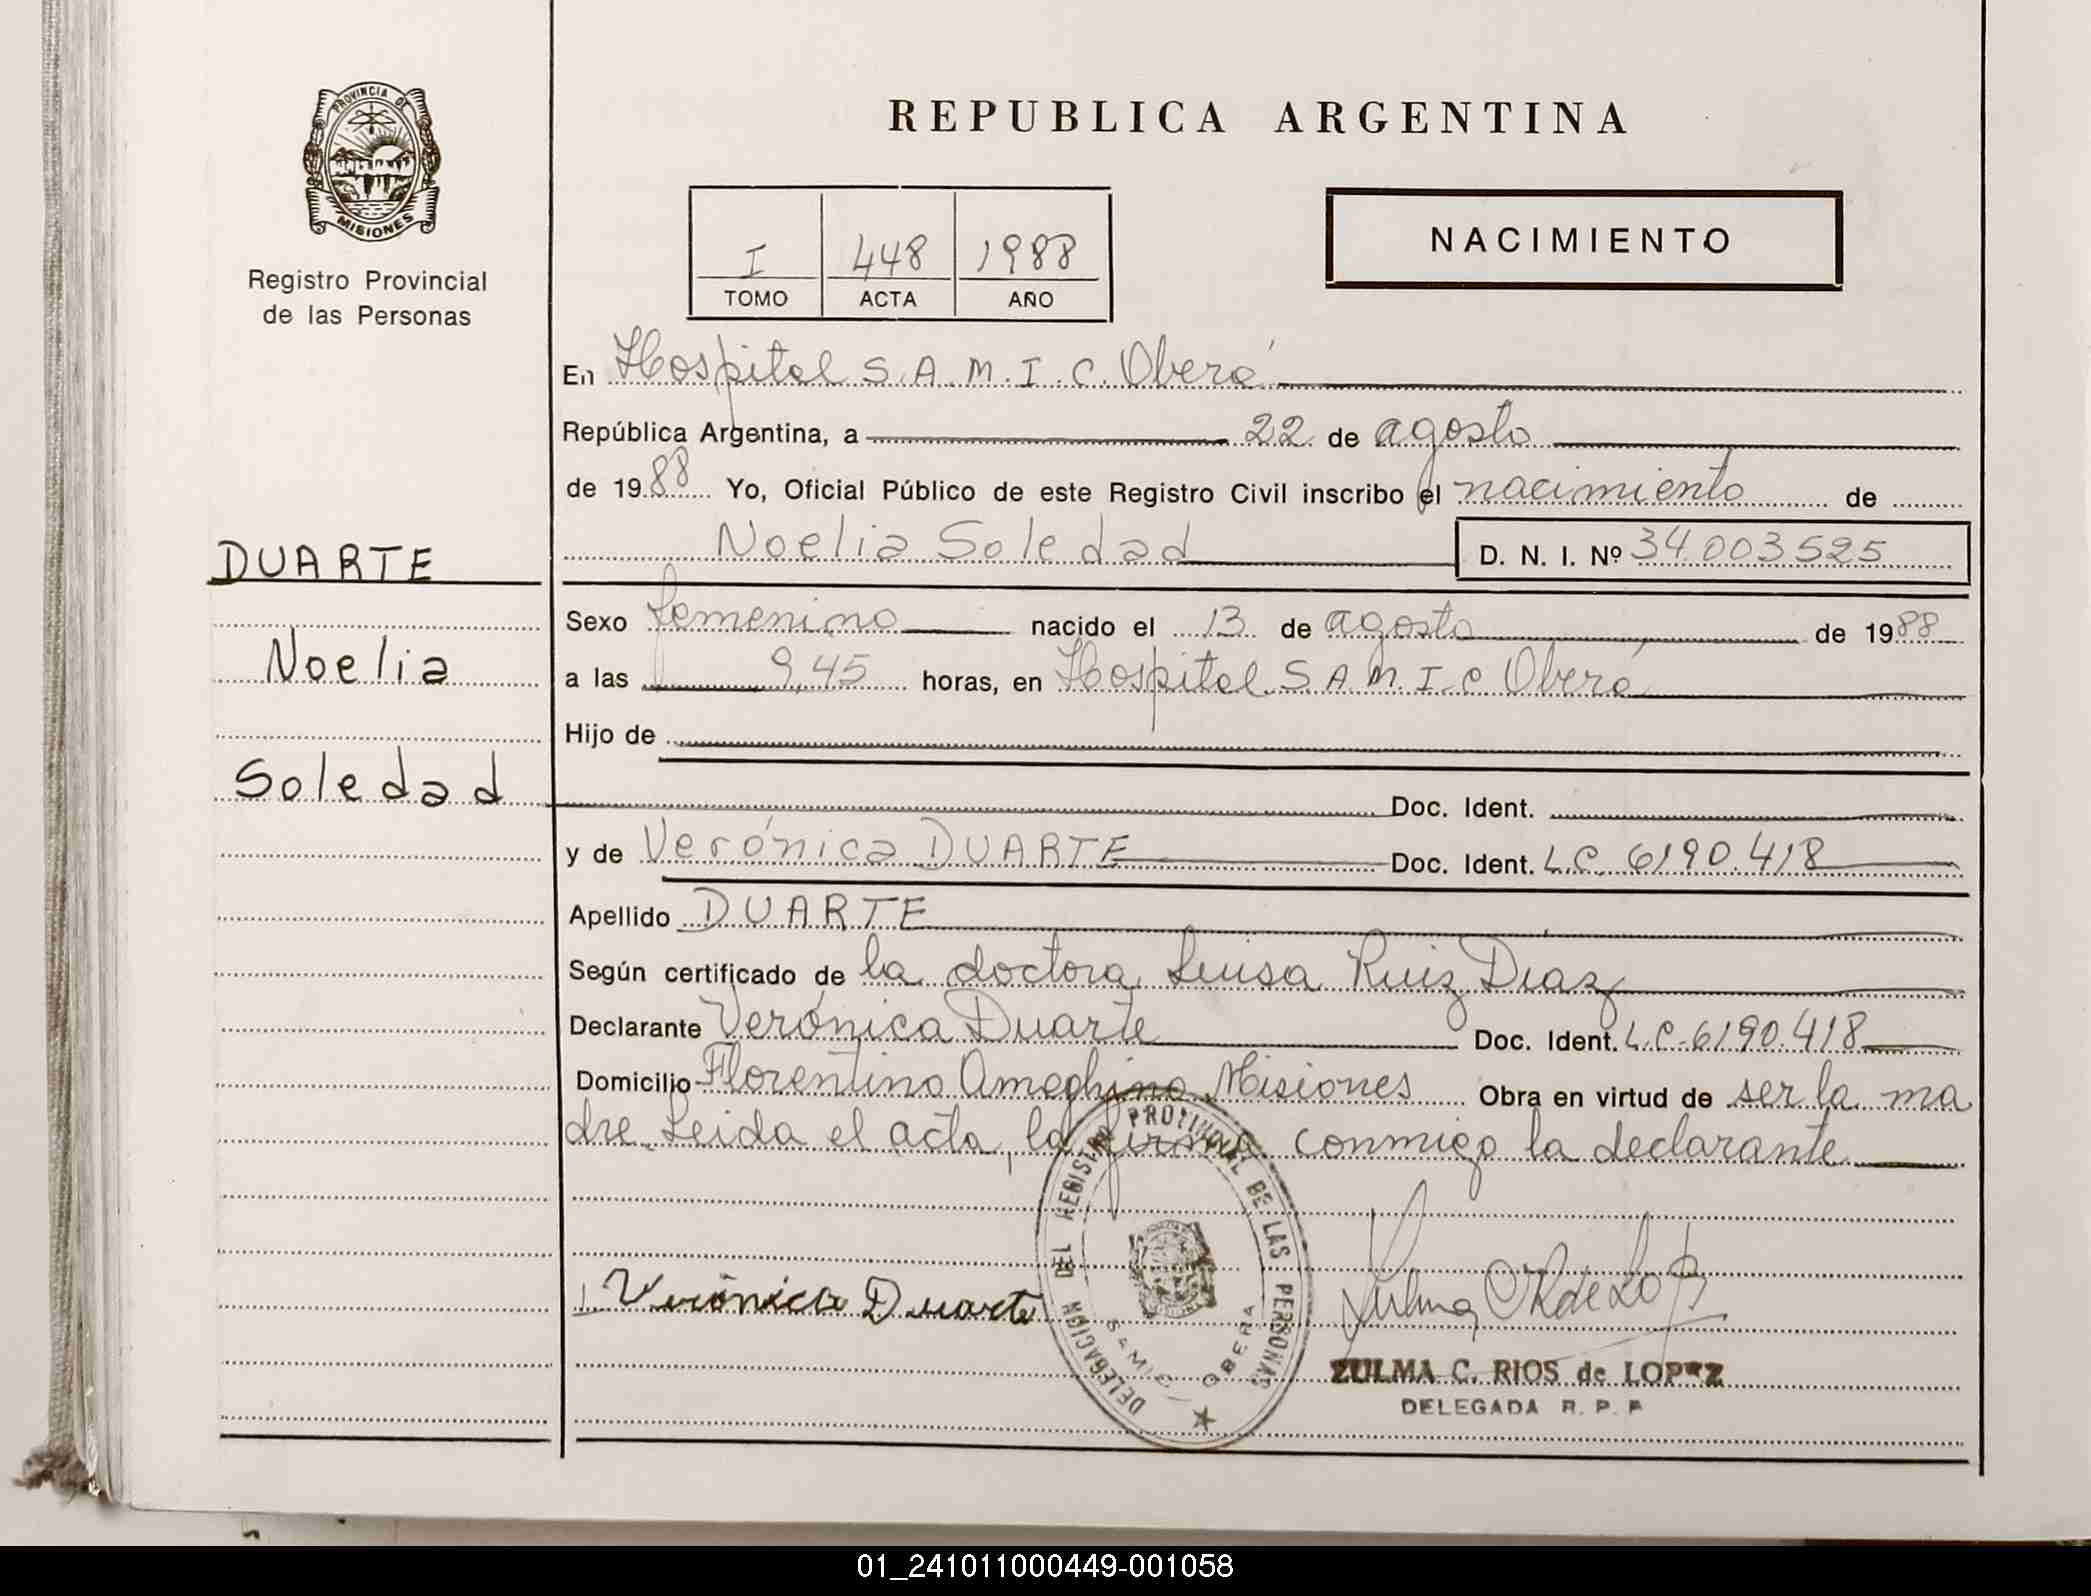 PROVINCIA DE
MISIONES
Registro Provincial
de las Personas
DUARTE
Noelia
Soledad
REPUBLICA ARGENTINA
I 448 1988
TOMO ACTA AÑO
NACIMIENTO
En Hospital S.A.M.I.C. Oberá
República Argentina, a 22 de agosto
de 1988 Yo, Oficial Público de este Registro Civil inscribo el nacimiento de
Noelia Soledad D. N. I. Nº 34.003525
Sexo femenino nacido el 13 de agosto de 1988
a las 9,45 horas, en Hospital S.A.M.I.C Oberá
Hijo de
Doc. Ident.
y de Verónica DUARTE Doc. Ident. L.C. 6190.418
Apellido DUARTE
Según certificado de la doctora Luisa Ruiz Díaz
Declarante Verónica Duarte Doc. Ident. L.C. 6190.418
Domicilio Florentino Ameghino Misiones Obra en virtud de ser la ma
dre. Leida el acta, la firma conmigo la declarante
DELEGACION DEL REGISTRO PROVINCIAL DE LAS PERSONAS
SAMIC OBERA
Verónica Duarte
ZULMA C. RIOS de LOPEZ
DELEGADA R. P. P
01_241011000449-001058